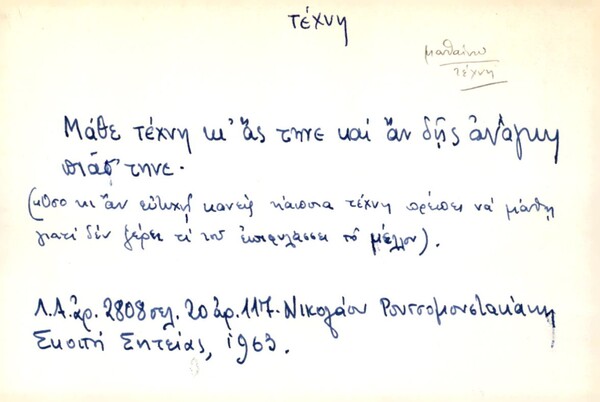 τέχνη
μαθαίνω
τέχνη
Μάθε τέχνη κι' ἄς τηνε καί ἄν δῇς ἀνάγκη
πιάσ' τηνε.
(Ὅσο κι ἄν εὐτυχῇ κανείς κάποια τέχνη πρέπει νά μάθῃ
γιατί δέν ξέρει τί τοῦ ἐπιφυλάσσει τό μέλλον).
Λ.Α. ἀρ. 2808 σελ. 20 ἀρ. 117. Νικολάου Ρουτσομουστακάκη
Σκοπή Σητείας, 1963.